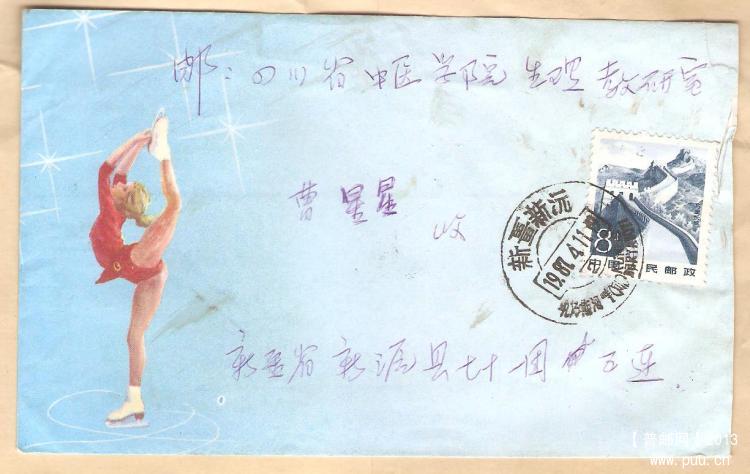 邮：四川省中医学院生理教研室
曹星星
收
8分
中国人民邮政
新疆新沅
1987.4.11
新疆省新沅县七十一团中工连
【普邮网】2013
www.puu.cn